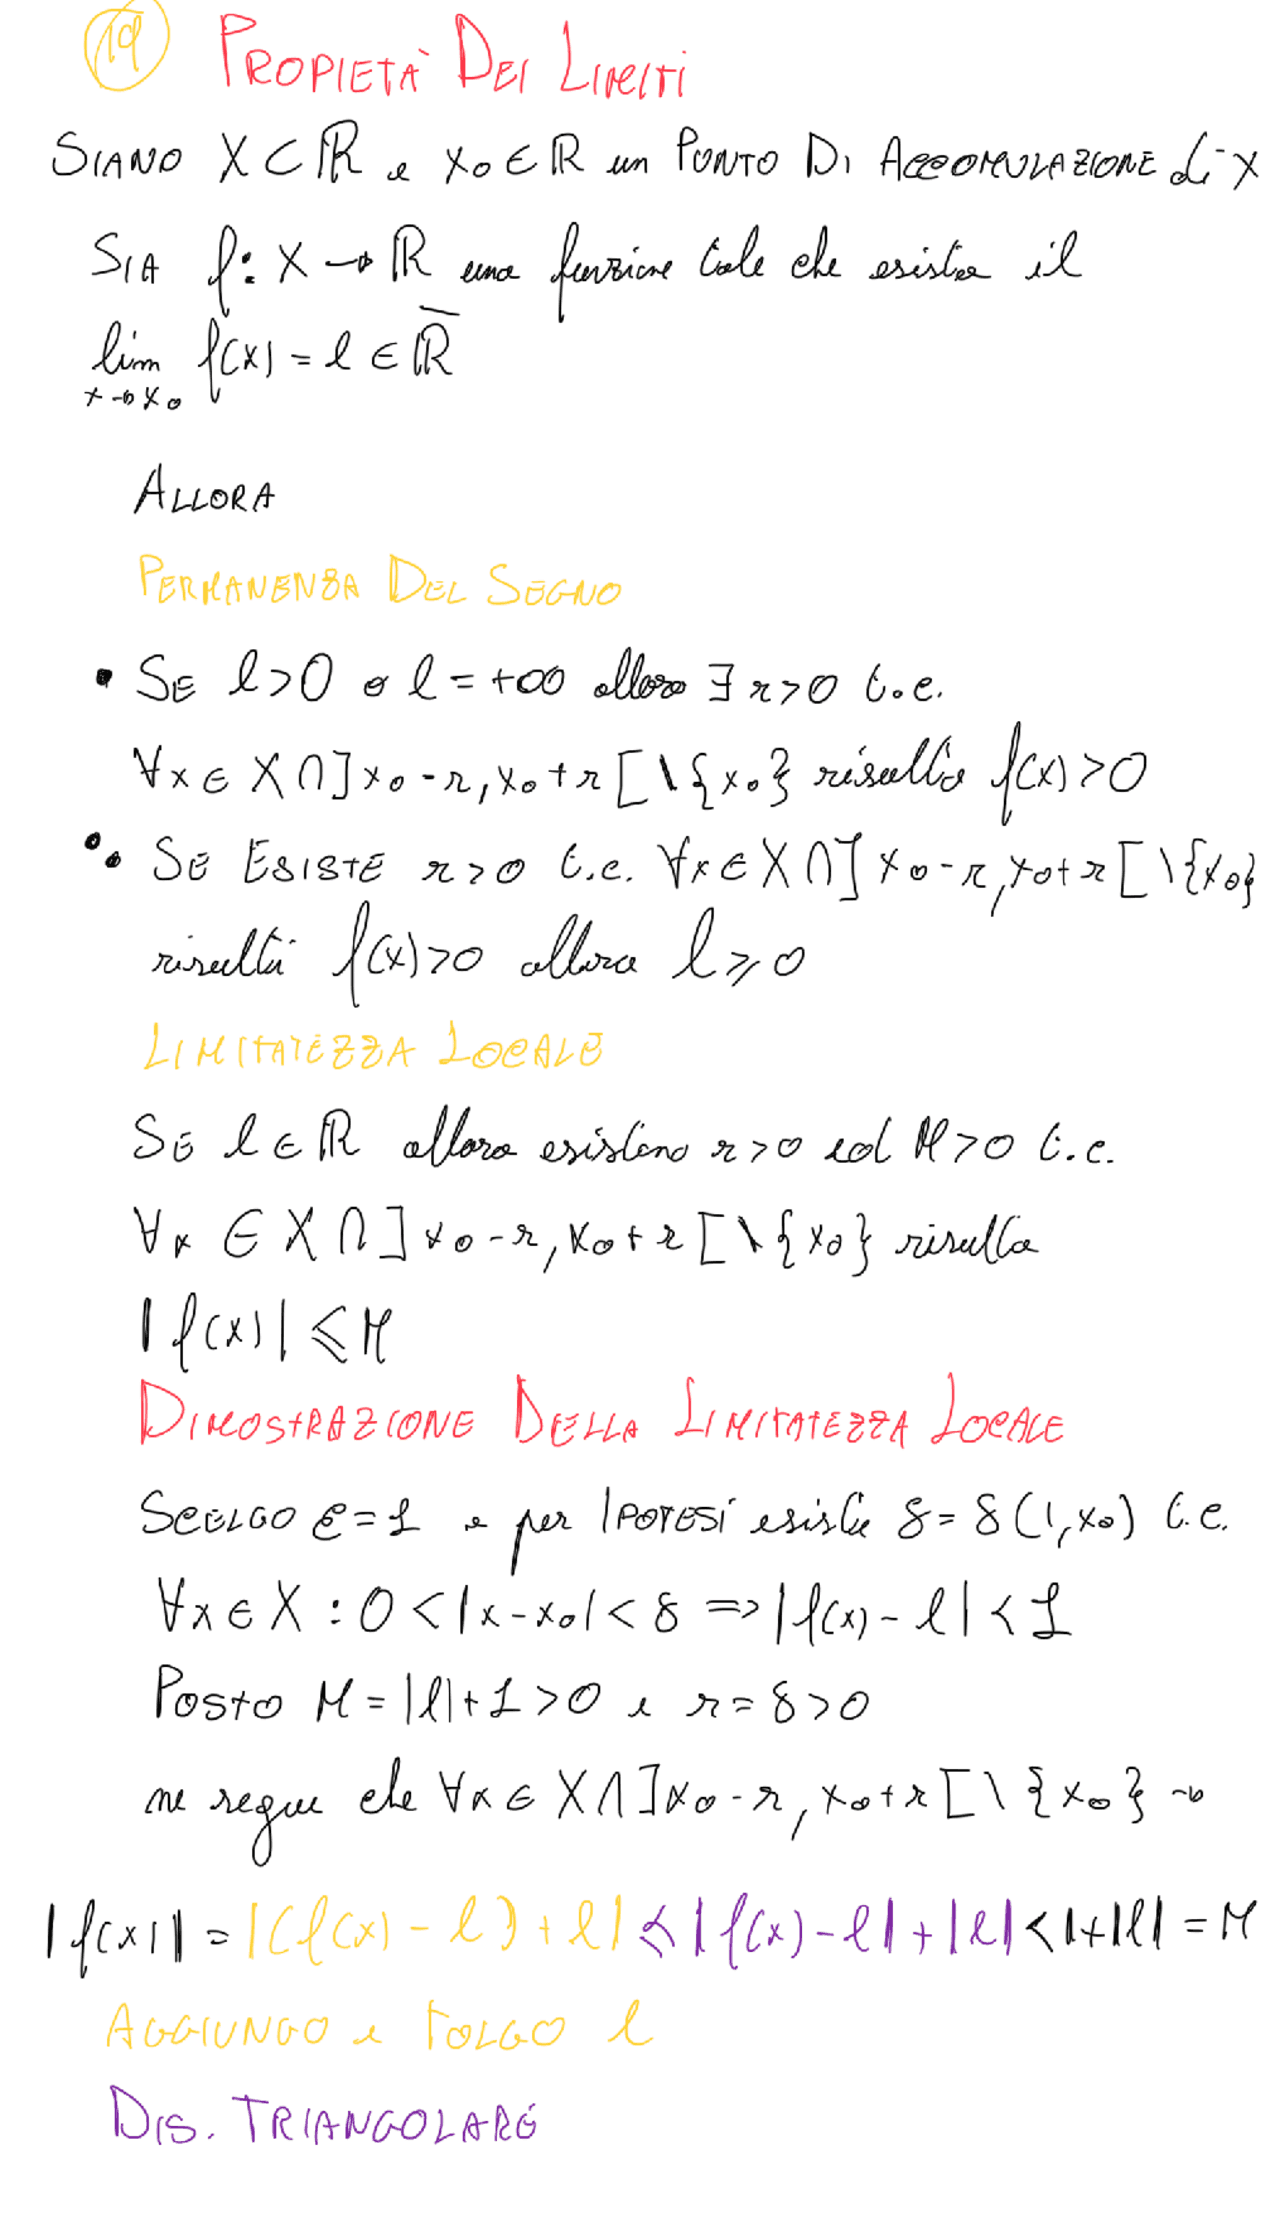 19 PROPIETÀ DEI LIMITI
SIANO X⊂ℝ e x₀∈ℝ un PUNTO DI ACCOMULAZIONE di X
SIA f: X→ℝ una funzione tale che esista il
lim f(x) = l ∈ ℝ̅
x→x₀
ALLORA
PERMANENZA DEL SEGNO
• SE l>0 o l=+∞ allora ∃ r>0 t.c.
∀x∈X∩]x₀-r,x₀+r[\{x₀} risulta f(x)>0
•• SE ESISTE r>0 t.c. ∀x∈X∩]x₀-r,x₀+r[\{x₀}
risulti f(x)>0 allora l⩾0
LIMITATEZZA LOCALE
SE l∈ℝ allora esistono r>0 ed M>0 t.c.
∀x∈X∩]x₀-r,x₀+r[\{x₀} risulta
|f(x)|⩽M
DIMOSTRAZIONE DELLA LIMITATEZZA LOCALE
SCELGO ε=1 e per IPOTESI esiste δ=δ(1,x₀) t.c.
∀x∈X : 0<|x-x₀|<δ => |f(x)-l|<1
POSTO M=|l|+1>0 e r=δ>0
ne segue che ∀x∈X∩]x₀-r,x₀+r[\{x₀} →
|f(x)| = |(f(x)-l)+l| ⩽ |f(x)-l|+|l| < 1+|l| = M
AGGIUNGO e TOLGO l
DIS. TRIANGOLARE